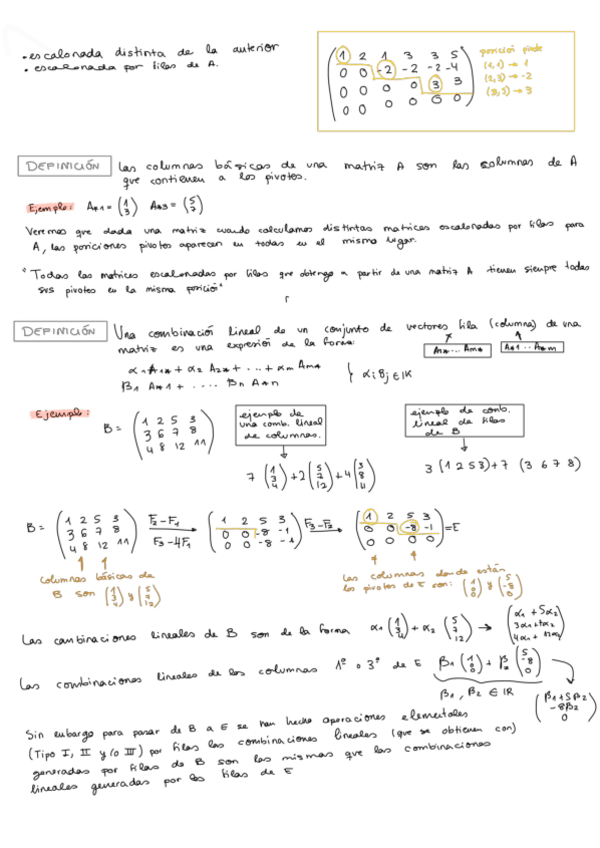 • escalonada distinta de la anterior
• escalonada por filas de A.
( 1 2 1 3 3 5 )
( 0 0 -2 -2 -2 -4 )
( 0 0 0 0 3 3 )
( 0 0 0 0 0 0 )
posición pivote
(1,1) → 1
(2,3) → -2
→ 3
DEFINICIÓN Las columnas básicas de una matriz A son las columnas de A
que contienen a los pivotes.
Ejemplo: A*1 = (1 3) A*3 = (5 7)
Veremos que dada una matriz cuando calculamos distintas matrices escalonadas por filas para
A, las posiciones pivotes aparecen en todas en el mismo lugar.
"Todas las matrices escalonadas por filas que obtengo a partir de una matriz A tienen siempre todas
sus pivotes en la misma posición"
DEFINICIÓN Una combinación lineal de un conjunto de vectores fila (columna) de una
matriz es una expresión de la forma:
A1* ... Am* A*1 ... A*n
α1 A1* + α2 A2* + ... + αm Am*
β1 A*1 + .... βn A*n } αi βj ∈ IK
Ejemplo:
B = ( 1 2 5 3 )
( 3 6 7 8 )
( 4 8 12 11 )
ejemplo de
una comb. lineal
de columnas.
7 (1 3 4) + 2 (5 7 12) + 4 (3 8 11)
ejemplo de comb.
lineal de filas
de B
3 (1 2 5 3) + 7 (3 6 7 8)
B = ( 1 2 5 3 ) F2-F1 ( 1 2 5 3 ) F3-F2 ( 1 2 5 3 ) = E
( 3 6 7 8 ) F3-4F1 ( 0 0 -8 -1 ) ( 0 0 -8 -1 )
( 4 8 12 11 ) ( 0 0 -8 -1 ) ( 0 0 0 0 )
columnas básicas de
B son (1 3 4) y (5 7 12)
Las columnas donde están
los pivotes de E son: (1 0 0) y (5 -8 0)
Las combinaciones lineales de B son de la forma α1 (1 3 4) + α2 (5 7 12) → (α1 + 5α2
3α1+7α2
4α1 + 12α2)
Las combinaciones lineales de las columnas 1º o 3º de E β1 (1 0 0) + β2 (5 -8 0)
β1, β2 ∈ IR
(β1+5β2
-8β2
0)
Sin embargo para pasar de B a E se han hecho operaciones elementales
(Tipo I, II y/o III) por filas las combinaciones lineales (que se obtienen con)
generadas por filas de B son las mismas que las combinaciones
lineales generadas por las filas de E